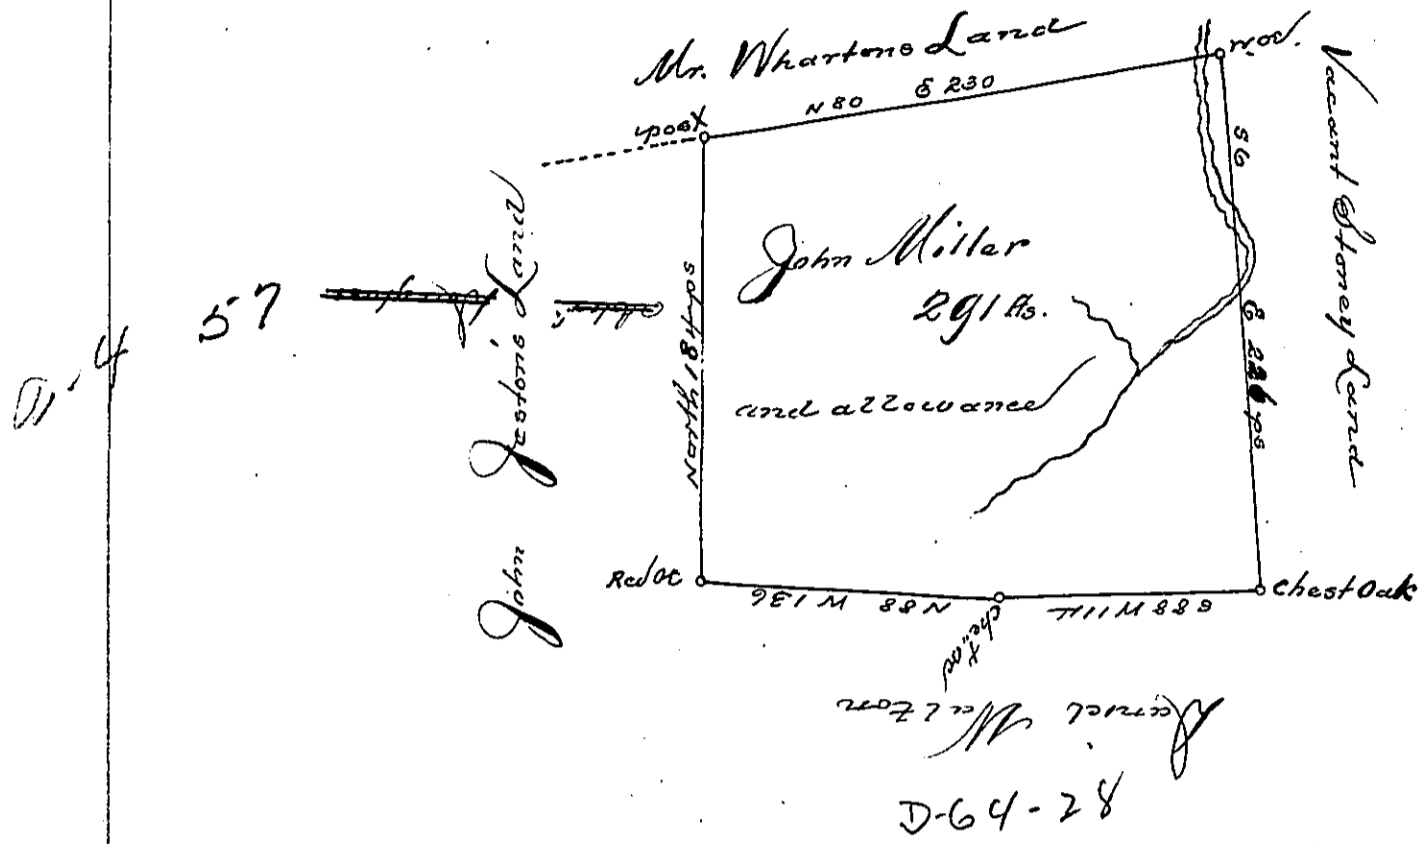 Mr. Whartons Land
N 80 E 230
post
w.o.
Vacant Stoney Land
S 6 E 226 ps
John Miller
291 As.
and allowance
North 184 ps
John Jestons Land
57
Red oc
N 88 W 136
S 88 W 111
chest Oak
Daniel Walton
D-64-28